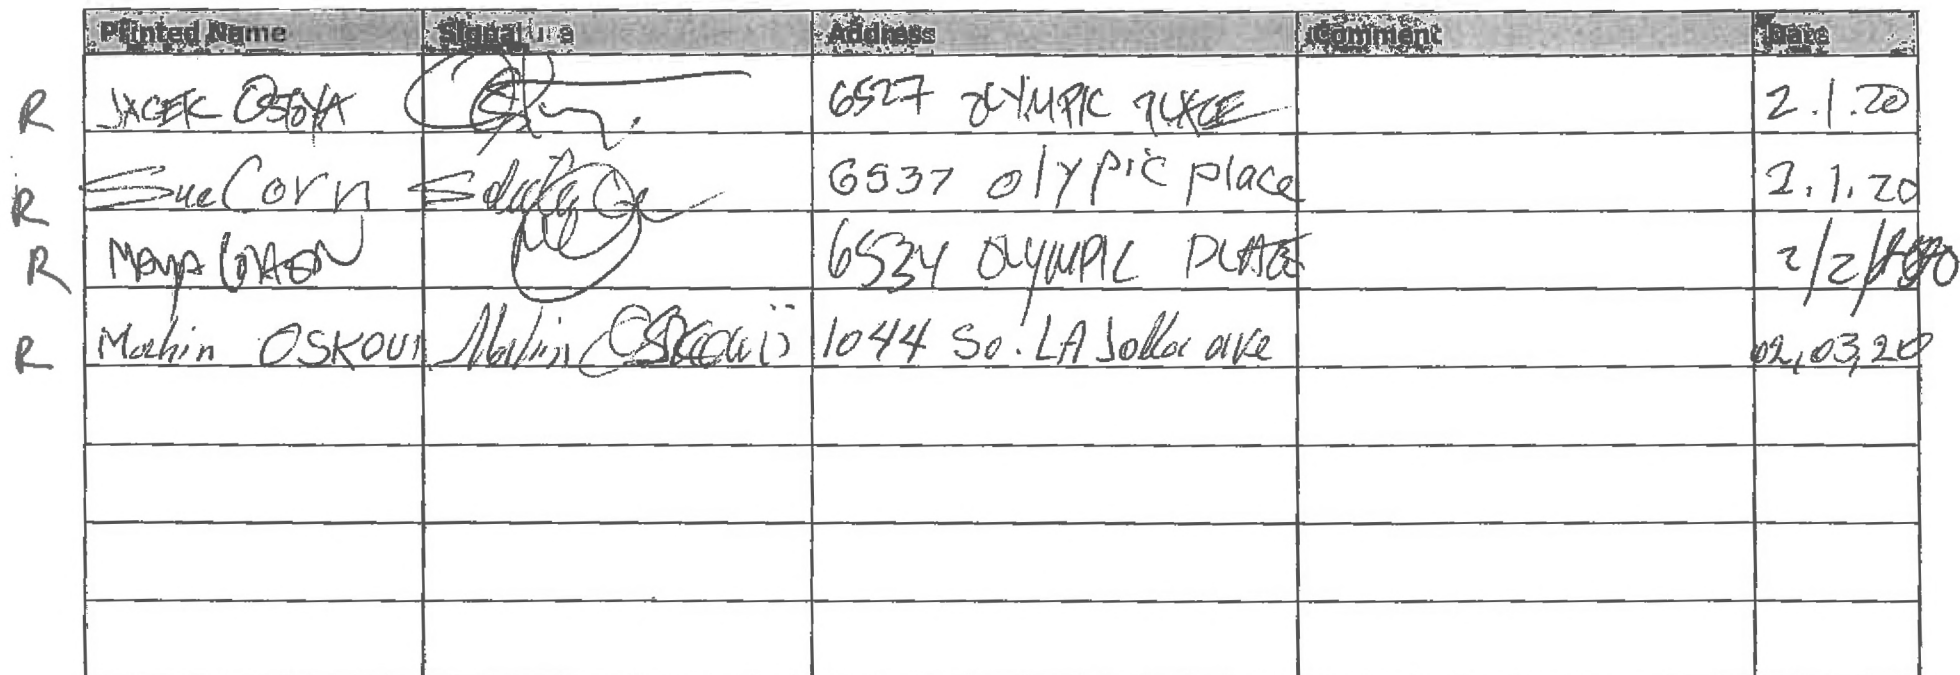 Printed Name Signature Address Comment Date
R JACEK OSTOYA 6527 OLYMPIC PLACE 2.1.20
R Sue Corn 6537 olypic place 2.1.20
R MAYA 6534 OLYMPIC PLACE 2/2/
R Mahin OSKOUI Mahin OSKOUII 1044 So. LA Jolla ave 02,03,20